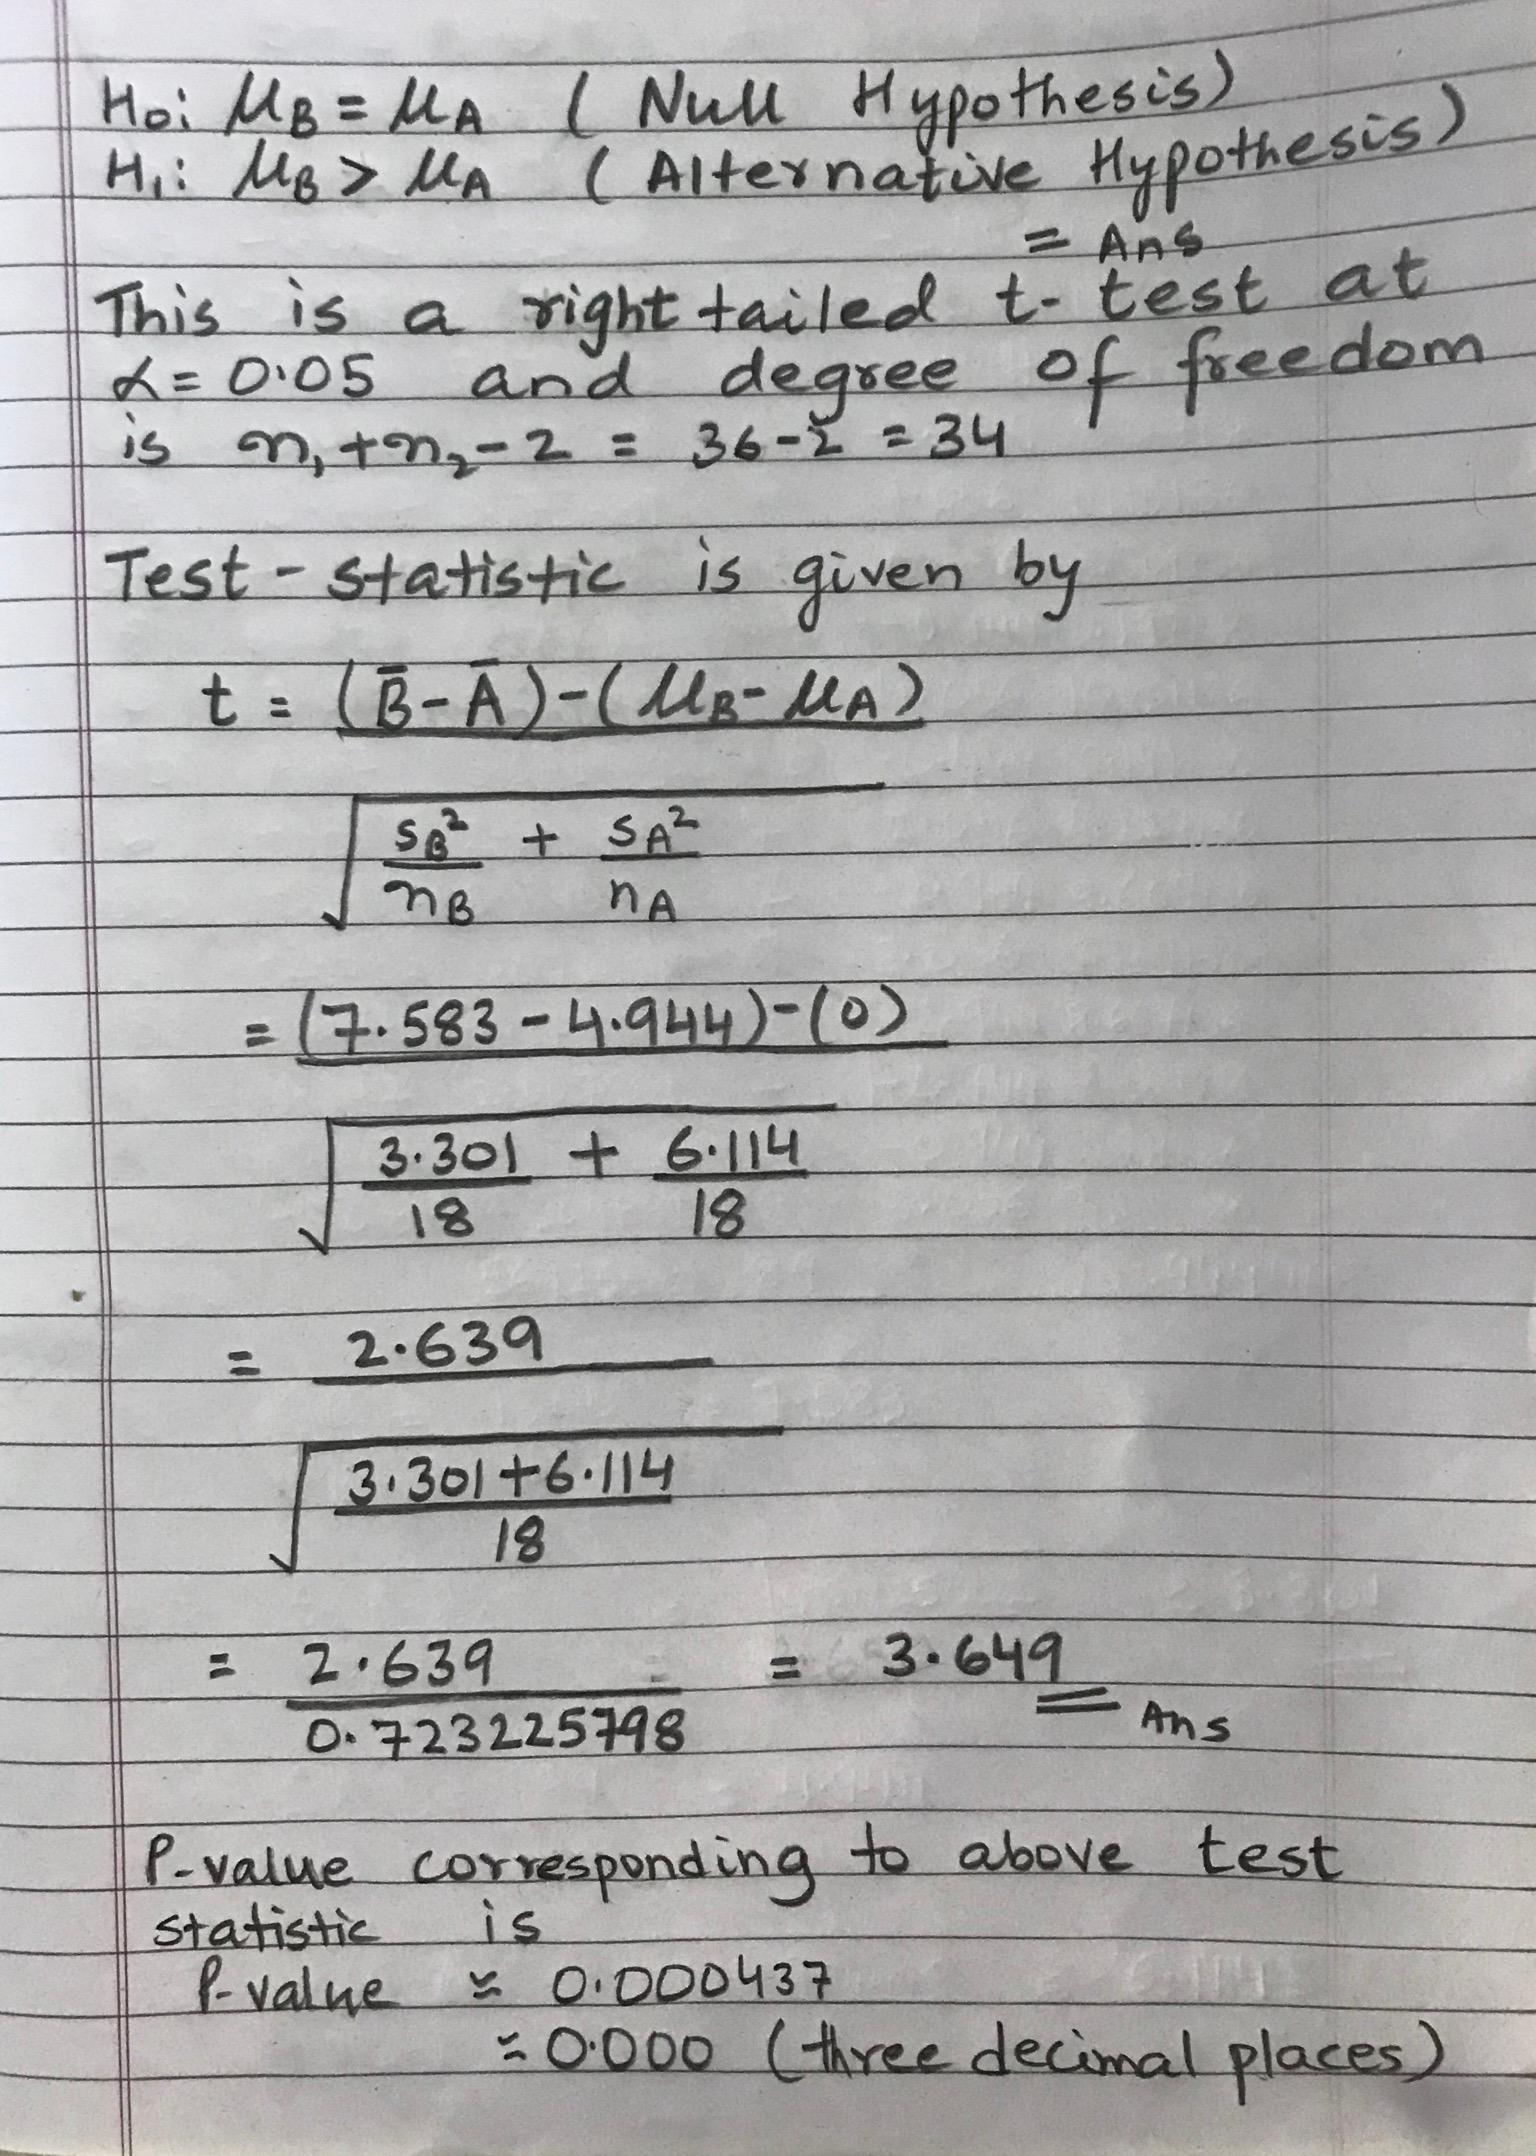 H₀: μB = μA ( Null Hypothesis)
H₁: μB > μA ( Alternative Hypothesis)
= Ans
This is a right tailed t- test at
α = 0.05 and degree of freedom
is n₁ + n₂ - 2 = 36 - 2 = 34
Test - statistic is given by
t = (B̄ - Ā) - (μB - μA)
√ sB²/nB + sA²/nA
= (7.583 - 4.944) - (0)
√ 3.301/18 + 6.114/18
= 2.639
√ 3.301+6.114/18
= 2.639/0.723225798 = 3.649 Ans
P-value corresponding to above test
statistic is
P-value ≈ 0.000437
≈ 0.000 (three decimal places)